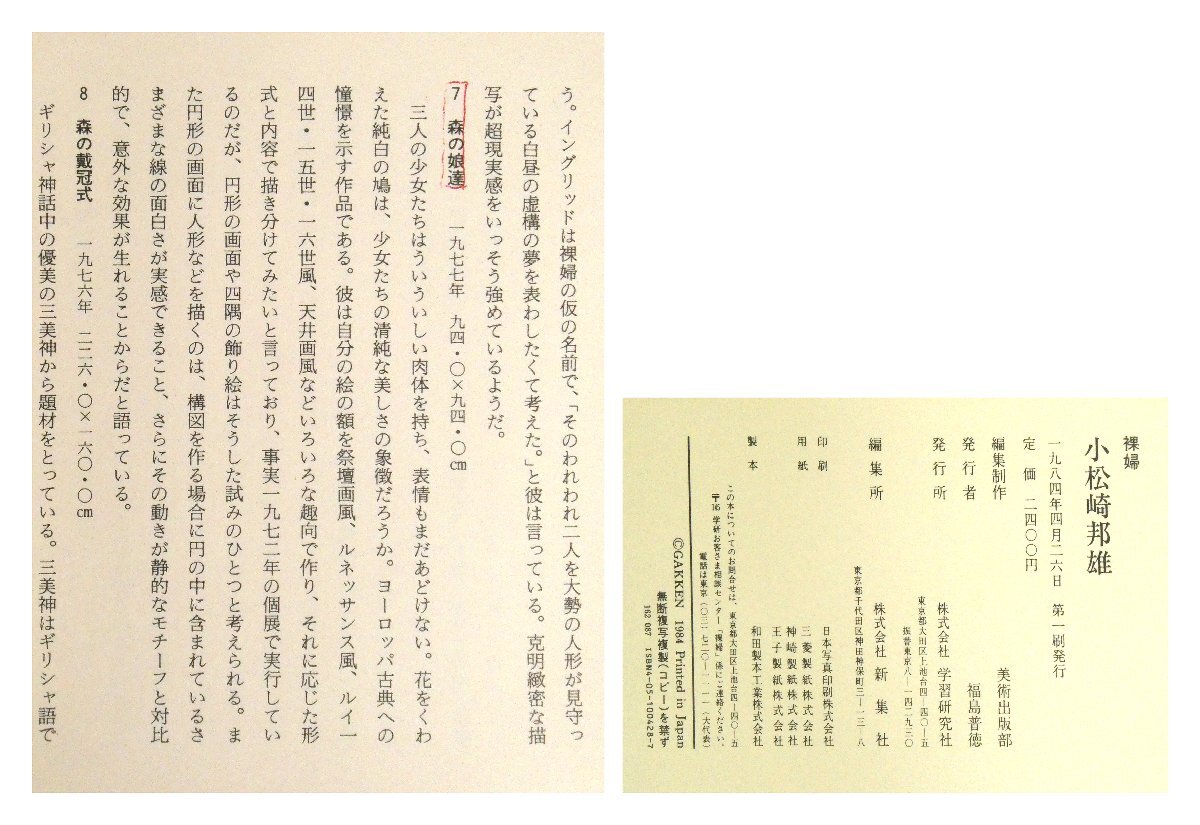 う。イングリッドは裸婦の仮の名前で、「そのわれわれ二人を大勢の人形が見守っ
ている白昼の虚構の夢を表わしたくて考えた。」と彼は言っている。克明緻密な描
写が超現実感をいっそう強めているようだ。
7 森の娘達 一九七七年 九四・〇×九四・〇㎝
三人の少女たちはういういしい肉体を持ち、表情もまだあどけない。花をくわ
えた純白の鳩は、少女たちの清純な美しさの象徴だろうか。ヨーロッパ古典への
憧憬を示す作品である。彼は自分の絵の額を祭壇画風、ルネッサンス風、ルイ一
四世・一五世・一六世風、天井画風などいろいろな趣向で作り、それに応じた形
式と内容で描き分けてみたいと言っており、事実一九七二年の個展で実行してい
るのだが、円形の画面や四隅の飾り絵はそうした試みのひとつと考えられる。ま
た円形の画面に人形などを描くのは、構図を作る場合に円の中に含まれているさ
まざまな線の面白さが実感できること、さらにその動きが静的なモチーフと対比
的で、意外な効果が生れることからだと語っている。
8 森の戴冠式 一九七六年 二二六・〇×一六〇・〇㎝
ギリシャ神話中の優美の三美神から題材をとっている。三美神はギリシャ語で
裸婦
小松崎邦雄
一九八四年四月二六日 第一刷発行
定価 二四〇〇円
編集制作 美術出版部
発行者 福島普徳
発行所 株式会社 学習研究社
東京都大田区上池台四-四〇-五
振替東京八-一四二九三〇
編集所 株式会社 新集社
東京都千代田区神田神保町三-一三-八
印刷 日本写真印刷株式会社
用紙 三菱製紙株式会社
神崎製紙株式会社
王子製紙株式会社
製本 和田製本工業株式会社
この本についてのお問合せは、東京都大田区上池台四-四〇-五
〒145 学研お客さま相談センター「裸婦」係にご連絡ください。
電話は東京(〇三)七二〇-一一一一(大代表)
©GAKKEN 1984 Printed in Japan
無断複写複製(コピー)を禁ず
162 087 ISBN4-05-100428-7